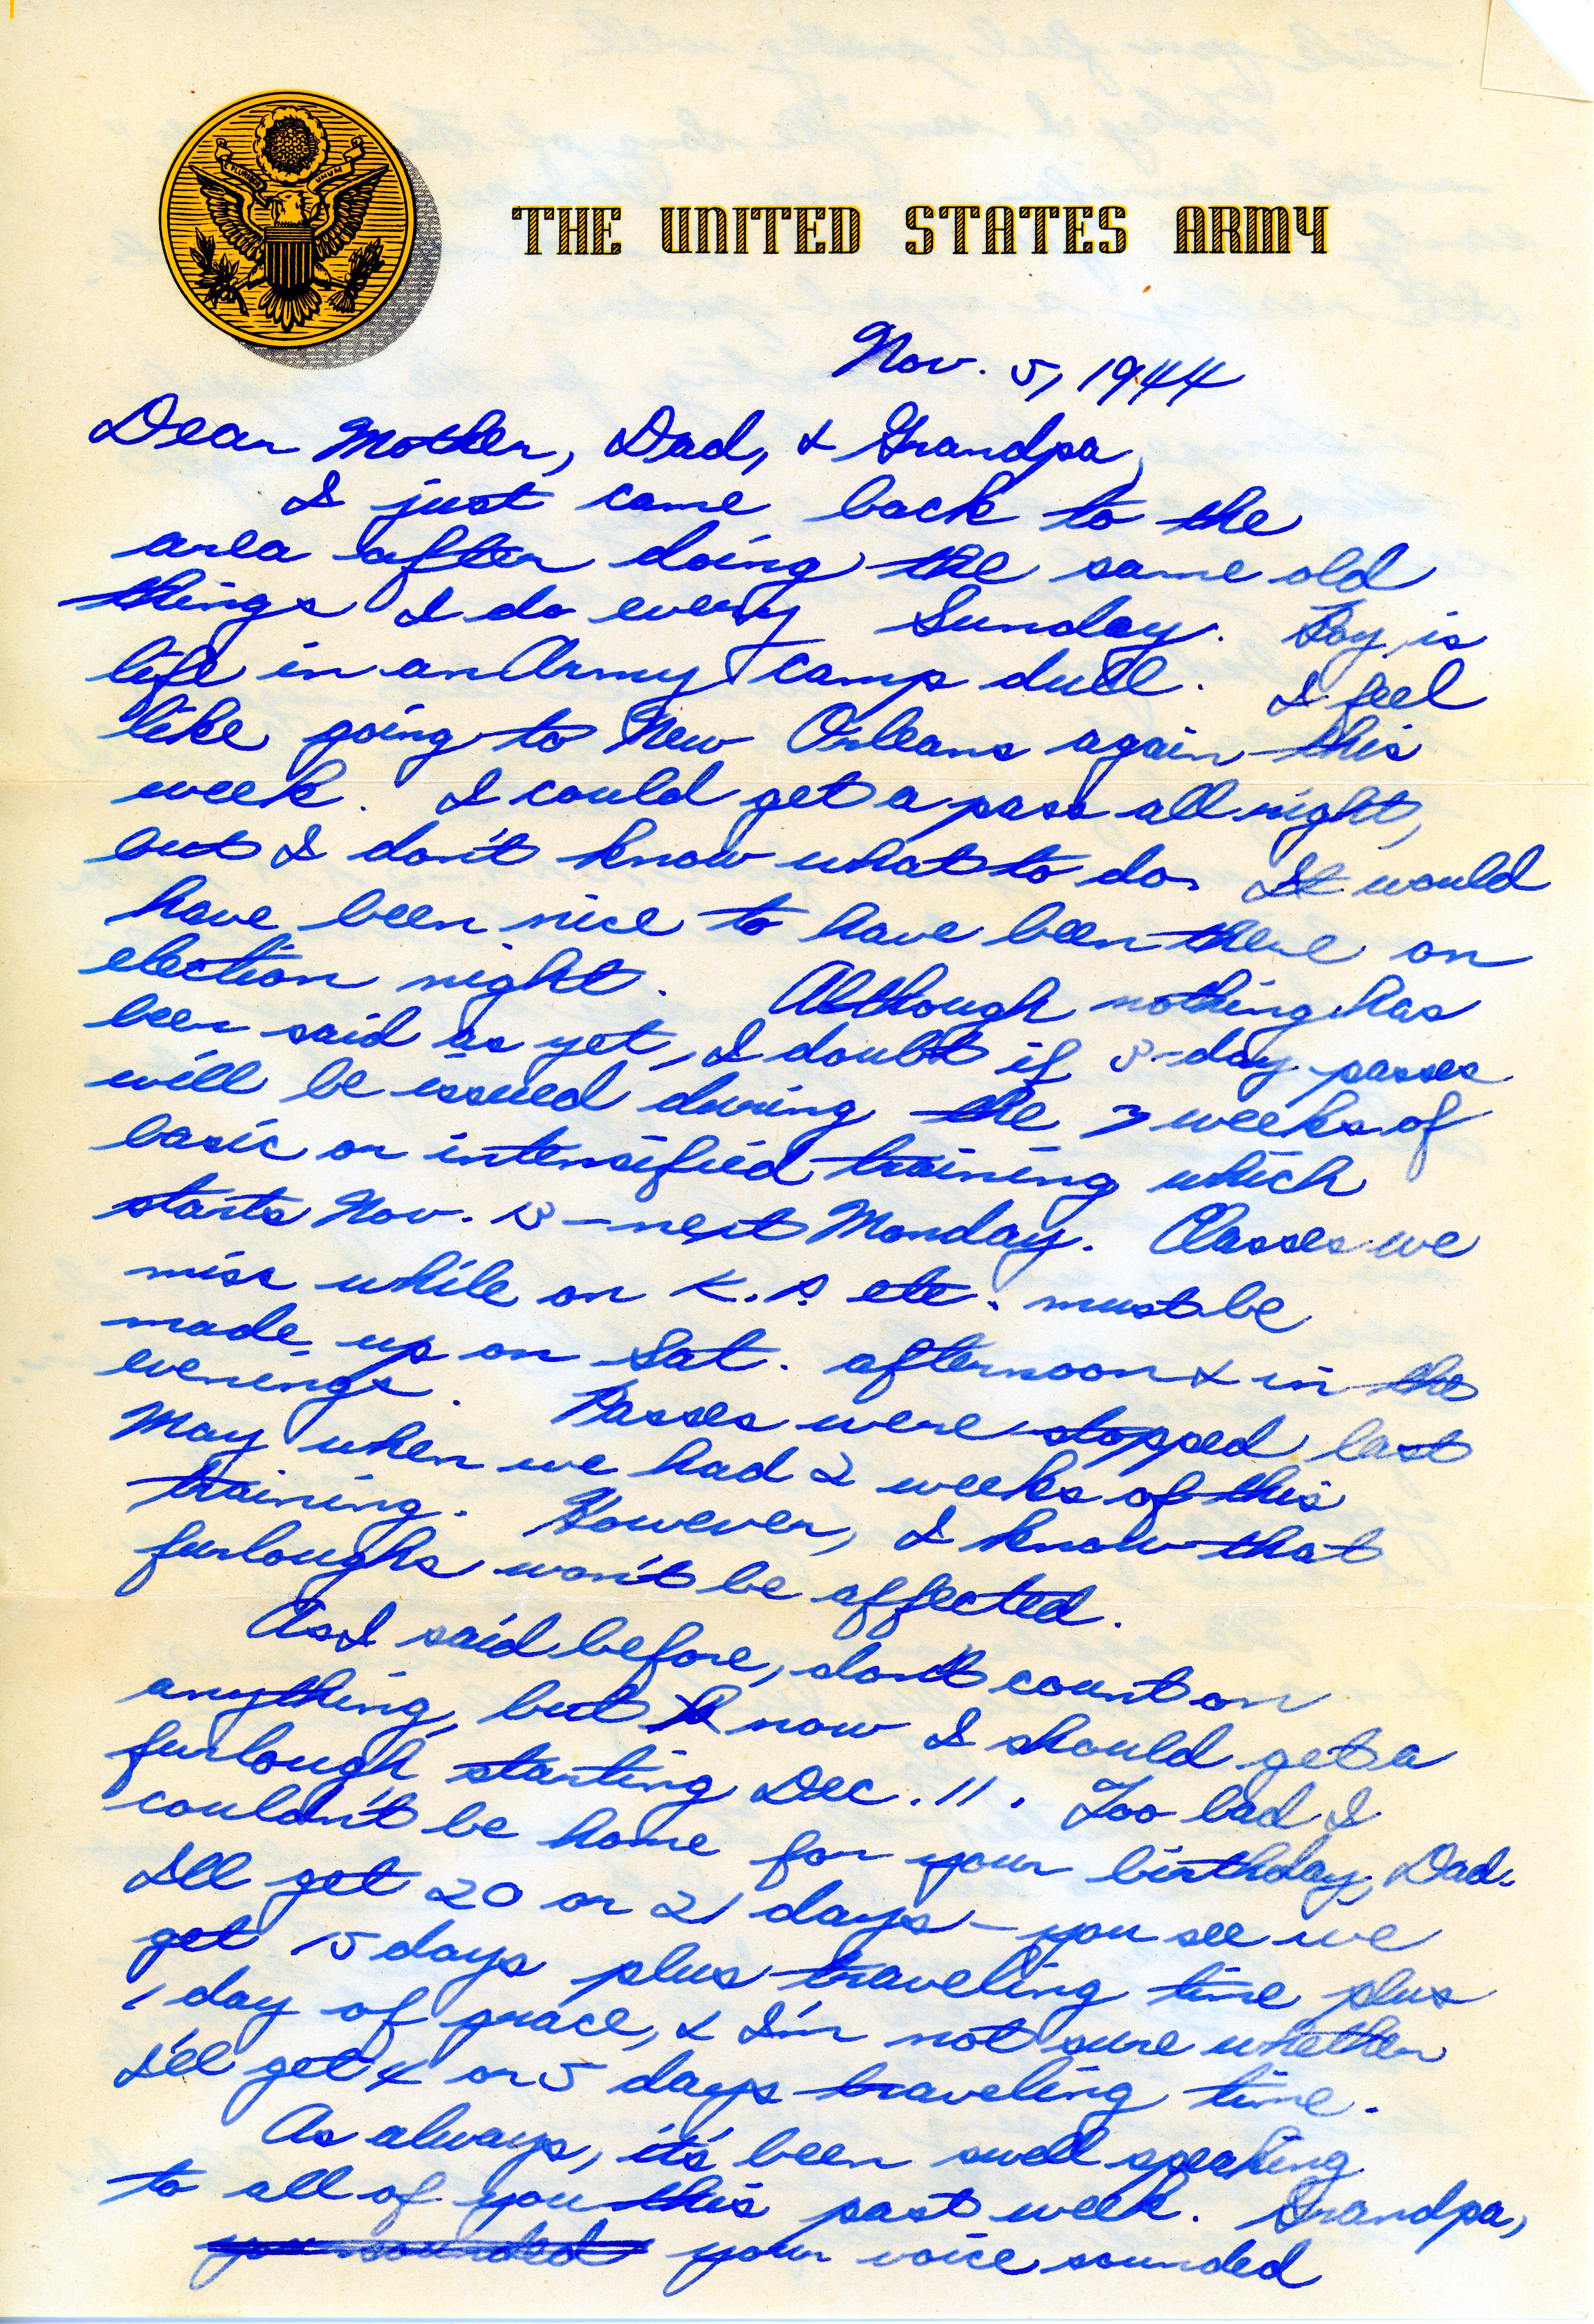 E PLURIBUS UNUM
THE UNITED STATES ARMY
Nov. 5, 1944
Dear Mother, Dad, & Grandpa,
I just came back to the
area after doing the same old
things I do every Sunday. Boy, is
life in an Army camp dull. I feel
like going to New Orleans again this
week. I could get a pass all right,
but I don't know what to do. It would
have been nice to have been there on
election night. Although nothing has
been said as yet, I doubt if 3-day passes
will be issued during the 3 weeks of
basic or intensified training which
starts Nov. 13 - next Monday. Classes we
miss while on K.P. etc. must be
made up on Sat. afternoon & in the
evenings. Passes were stopped last
May when we had 2 weeks of this
training. However, I know that
furloughs won't be affected.
As I said before, don't count on
anything, but now I should get a
furlough starting Dec. 11. Too bad I
couldn't be home for your birthday, Dad.
I'll get 20 or 21 days - you see we
get 15 days plus traveling time plus
1 day of grace, & I'm not sure whether
I'll get 4 or 5 days traveling time.
As always, it's been swell speaking
to all of you this past week. Grandpa,
you sounded your voice sounded